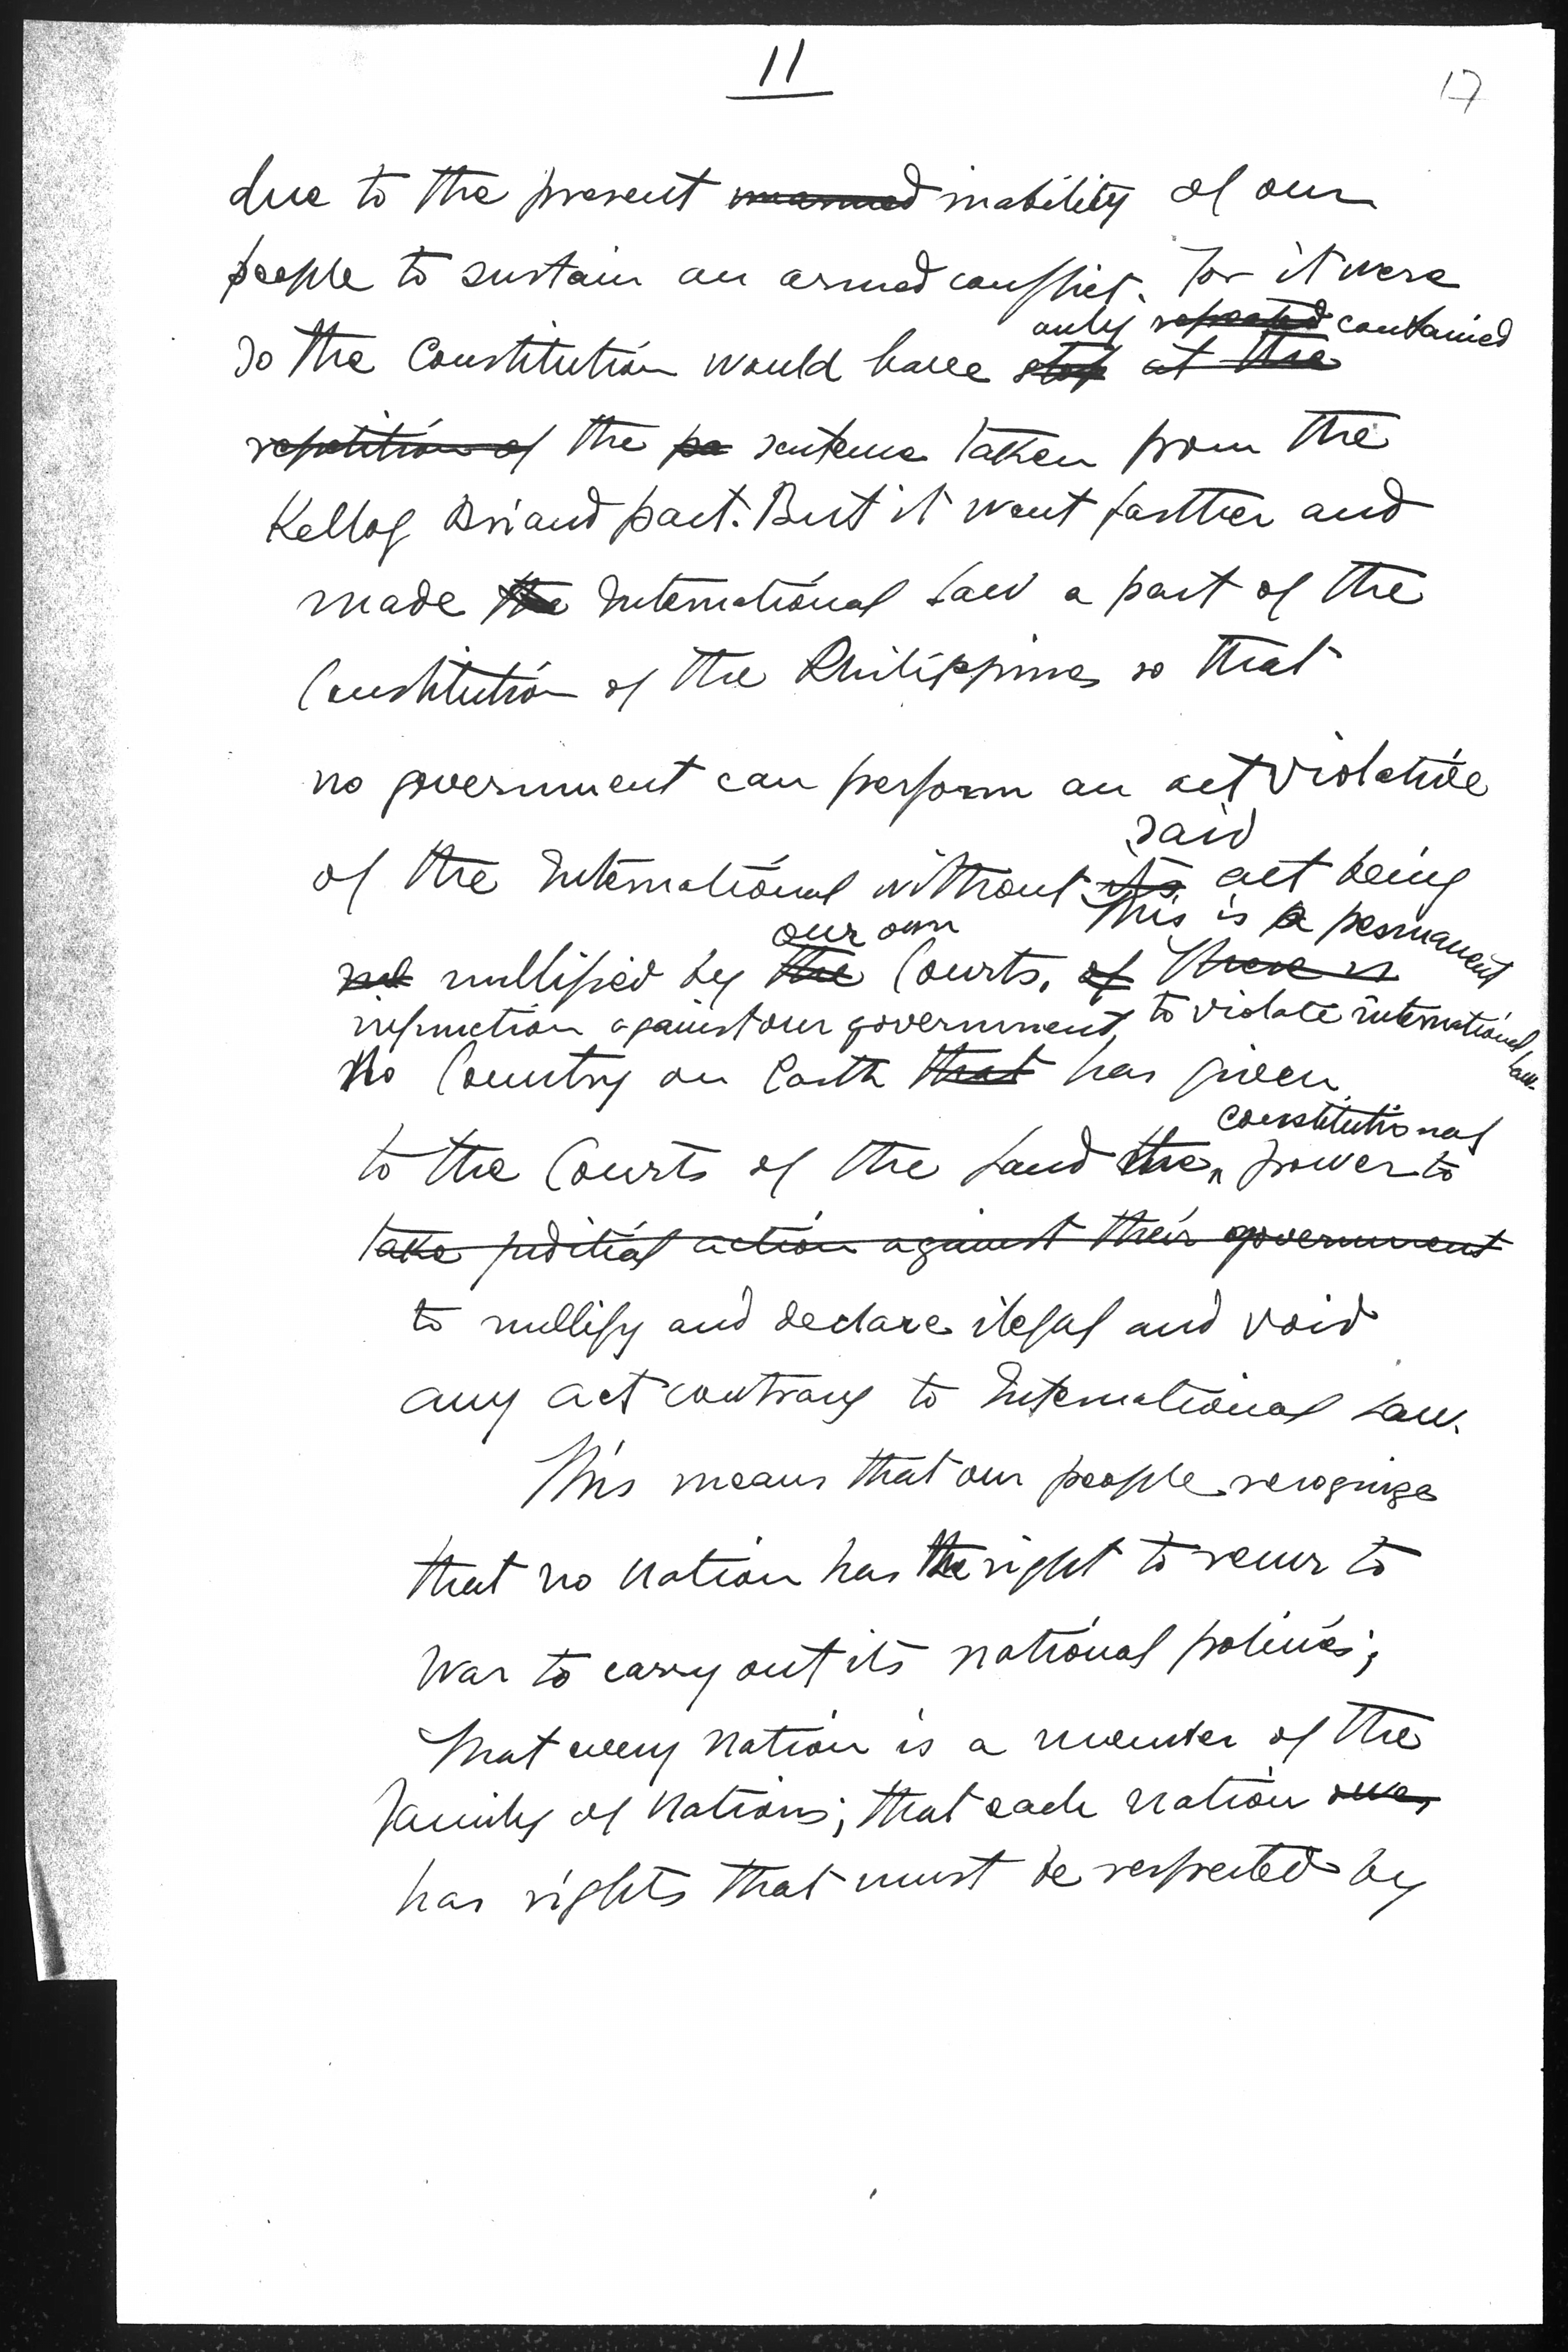 11
17
due to the present unarmed inability of our
people to sustain an armed conflict. For it were
only repeated contained
so the Constitution would have stop at the
repetition of the pa sentence taken from the
Kellog Briand pact. But it went farther and
made the International Law a part of the
Constitution of the Philippines so that
no government can perform an act violative
said
of the International without its act being
our own This is a permanent
not nullified by the Courts, of There is
injunction against our government to violate international law.
No Country on Earth that has given
constitutional
to the Courts of the Land the power to
take juditial action against their government
to nullify and declare ilegal and void
any act contrary to International Law.
This means that our people recognize
that no nation has the right to recur to
war to carry out its national policies;
That every nation is a member of the
Family of Nations; that each nation owes
has rights that must be respected by